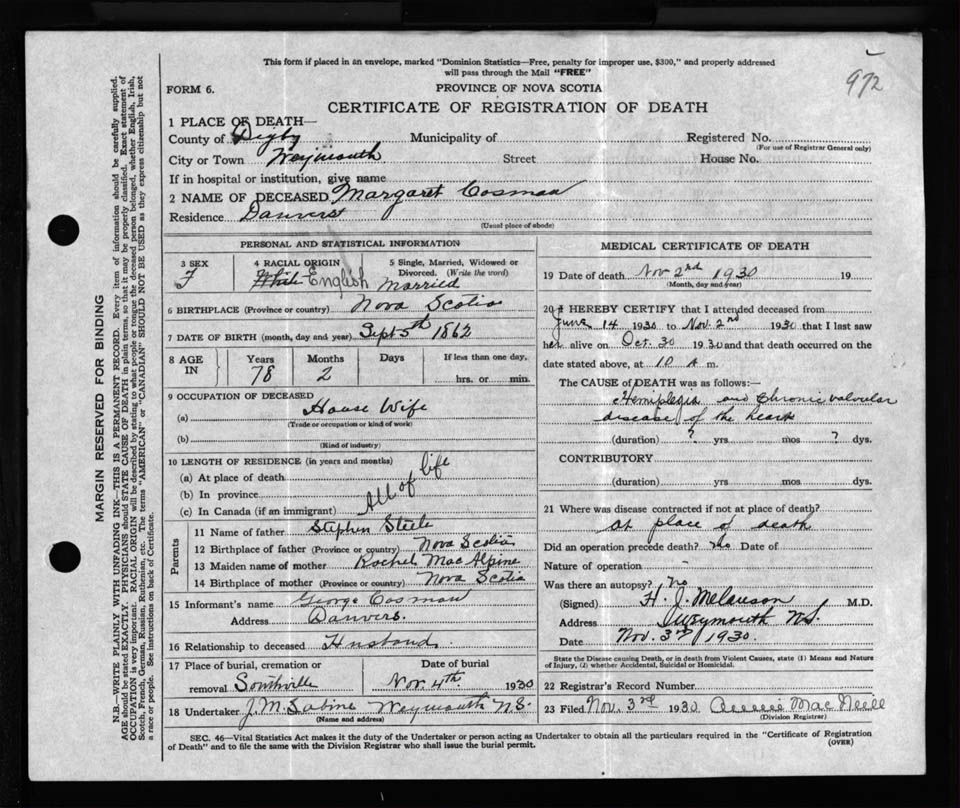 This form if placed in an envelope, marked "Dominion Statistics—Free, penalty for improper use, $300," and properly addressed
will pass through the Mail "FREE"
972
FORM 6.
PROVINCE OF NOVA SCOTIA
CERTIFICATE OF REGISTRATION OF DEATH
1 PLACE OF DEATH—
County of Digby Municipality of Registered No.
(For use of Registrar General only)
City or Town Weymouth Street House No.
If in hospital or institution, give name
2 NAME OF DECEASED Margaret Cosman
Residence Danvers
(Usual place of abode)
PERSONAL AND STATISTICAL INFORMATION
3 SEX
F
4 RACIAL ORIGIN
White English
5 Single, Married, Widowed or
Divorced. (Write the word)
Married
6 BIRTHPLACE (Province or country) Nova Scotia
7 DATE OF BIRTH (month, day and year) Sept 5th 1862
8 AGE IN
Years Months Days If less than one day,
78 2 hrs. or min.
9 OCCUPATION OF DECEASED
(a) House Wife
(Trade or occupation or kind of work)
(b)
(Kind of industry)
10 LENGTH OF RESIDENCE (in years and months)
(a) At place of death
(b) In province
(c) In Canada (if an immigrant)
All of life
Parents
11 Name of father Stephen Steele
12 Birthplace of father (Province or country) Nova Scotia
13 Maiden name of mother Rachel MacAlpine
14 Birthplace of mother (Province or country) Nova Scotia
15 Informant's name George Cosman
Address Danvers.
16 Relationship to deceased Husband.
17 Place of burial, cremation or Date of burial
removal Southville Nov 4th. 1930
18 Undertaker J. M. Sabine Weymouth N.S.
(Name and address)
MEDICAL CERTIFICATE OF DEATH
19 Date of death Nov 2nd 1930 19
(Month, day and year)
20 I HEREBY CERTIFY that I attended deceased from
June 14 1930 to Nov. 2nd 1930 that I last saw
her alive on Oct. 30 1930 and that death occurred on the
date stated above, at 10 A m.
The CAUSE of DEATH was as follows:—
Hemiplegia and Chronic valvular
disease of the heart
(duration) ? yrs mos ? dys.
CONTRIBUTORY
(duration) yrs mos dys.
21 Where was disease contracted if not at place of death?
At place of death
Did an operation precede death? No Date of
Nature of operation -
Was there an autopsy? No
(Signed) H. J. Melanson M.D.
Address Weymouth N.S.
Date Nov. 3rd 1930.
State the Disease causing Death, or in death from Violent Causes, state (1) Means and Nature
of Injury, (2) whether Accidental, Suicidal or Homicidal.
22 Registrar's Record Number
23 Filed Nov. 3rd 1930 Annie MacNeill
(Division Registrar)
SEC. 46—Vital Statistics Act makes it the duty of the Undertaker or person acting as Undertaker to obtain all the particulars required in the "Certificate of Registration
of Death" and to file the same with the Division Registrar who shall issue the burial permit.
(OVER)
MARGIN RESERVED FOR BINDING
N.B.—WRITE PLAINLY WITH UNFADING INK—THIS IS A PERMANENT RECORD. Every item of information should be carefully supplied.
AGE should be stated EXACTLY. PHYSICIANS should STATE CAUSE OF DEATH in plain terms, so that it may be properly classified. Exact statement of
OCCUPATION is very important. RACIAL ORIGIN will be described by stating to what people or tongue the deceased person belonged, whether English, Irish,
Scotch, French, German, Russian, Ruthenian, etc. The terms "AMERICAN" or "CANADIAN" SHOULD NOT BE USED as they express citizenship but not
a race or people. See instructions on back of Certificate.